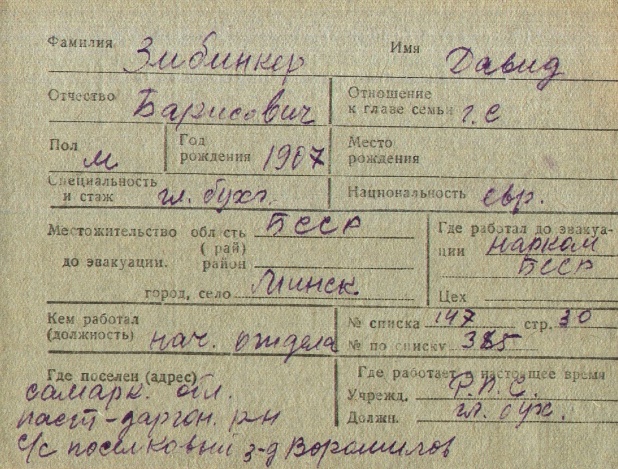 Фамилия Зибинкер Имя Давид
Отчество Барисович Отношение к главе семьи г.с
Пол м Год рождения 1907 Место рождения
Специальность и стаж гл. бухг. Национальность евр.
Местожительство область БССР Где работал до эвакуа-
( рай) ции нарком
до эвакуации. район БССР
город, село Минск Цех
Кем работал (должность) нач. отдела № списка 147 стр. 30
№ по списку 385
Где поселен (адрес) Где работает в настоящее время
самарк. обл. Учрежд. Р.П.С.
паст-даргом. р-н Должн. гл. бух.
с/с поселковый з-д Ворошилов